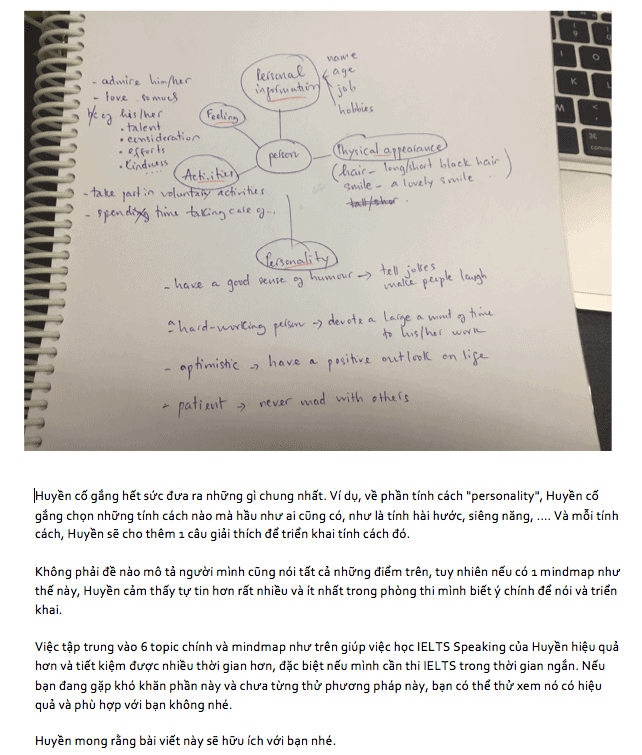 Personal
information
name
age
job
hobbies
- admire him/her
- love so much
b/c of his/her
• talent
• consideration
• efforts
• kindness
Feeling
person
Physical appearance
(hair – long/short black hair
smile – a lovely smile ... )
Activities
- take part in voluntary activities
- spending time taking care of...
Personality
- have a good sense of humour → tell jokes
make people laugh
a hard-working person → devote a large amount of time
to his/her work
- optimistic → have a positive outlook on life
- patient → never mad with others
Huyền cố gắng hết sức đưa ra những gì chung nhất. Ví dụ, về phần tính cách "personality", Huyền cố
gắng chọn những tính cách nào mà hầu như ai cũng có, như là tính hài hước, siêng năng, .... Và mỗi tính
cách, Huyền sẽ cho thêm 1 câu giải thích để triển khai tính cách đó.
Không phải đề nào mô tả người mình cũng nói tất cả những điểm trên, tuy nhiên nếu có 1 mindmap như
thế này, Huyền cảm thấy tự tin hơn rất nhiều và ít nhất trong phòng thi mình biết ý chính để nói và triển
khai.
Việc tập trung vào 6 topic chính và mindmap như trên giúp việc học IELTS Speaking của Huyền hiệu quả
hơn và tiết kiệm được nhiều thời gian hơn, đặc biệt nếu mình cần thi IELTS trong thời gian ngắn. Nếu
bạn đang gặp khó khăn phần này và chưa từng thử phương pháp này, bạn có thể thử xem nó có hiệu
quả và phù hợp với bạn không nhé.
Huyền mong rằng bài viết này sẽ hữu ích với bạn nhé.